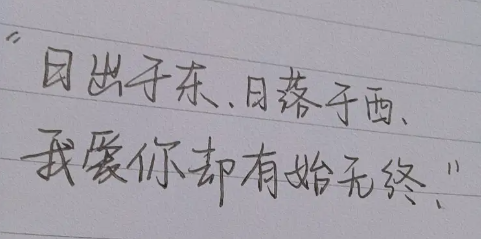 “日出于东、日落于西、
我爱你却有始无终、”